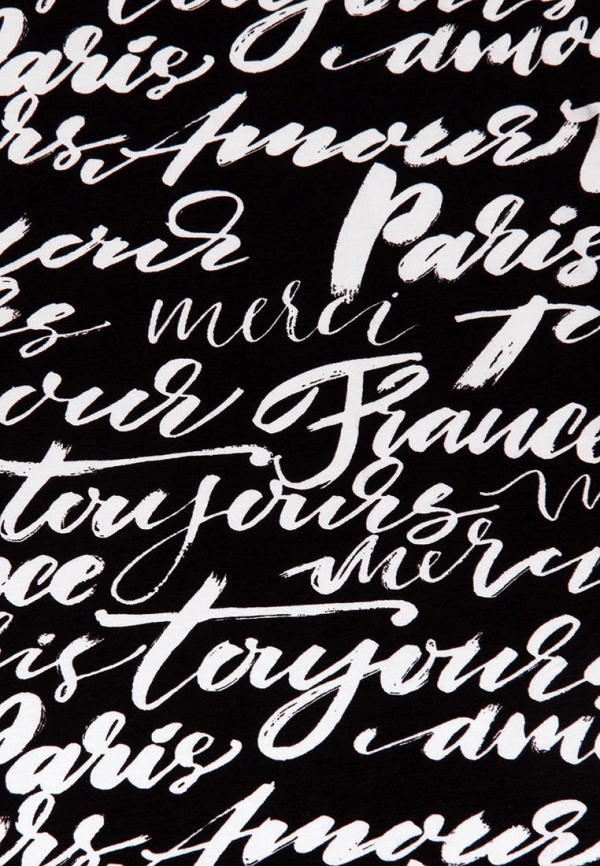 toujours
Paris amo
rs Amour T
our Paris
rs merci to
our France
toujours m
nce merci
is toujours
Paris amo
rs Amour